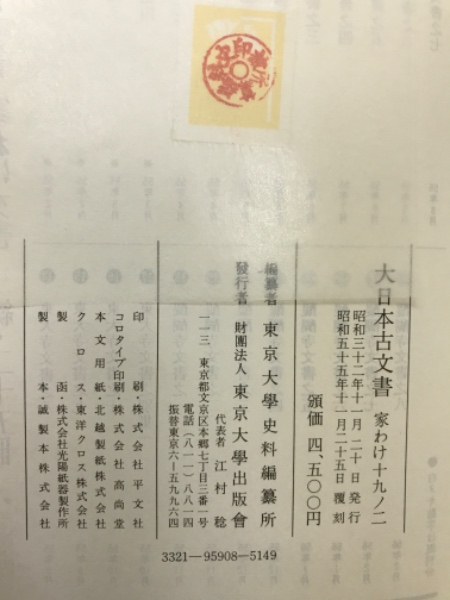 大日本古文書 家わけ十九ノ二
昭和三十二年十一月二十日 発行
昭和五十五年十一月二十五日 覆刻
頒価 四、五〇〇円
編纂者 東京大學史料編纂所
發行者 財團法人 東京大學出版會
代表者 江村稔
一一三 東京都文京区本郷七丁目三番一号
電話(八一一)八八一四
振替東京六ー五九九六四
印刷・株式会社平文社
コロタイプ印刷・株式会社高尚堂
本文用紙・北越製紙株式会社
クロス・東洋クロス株式会社
製函・株式会社光陽紙器製作所
製本・誠製本株式会社
3321—95908—5149